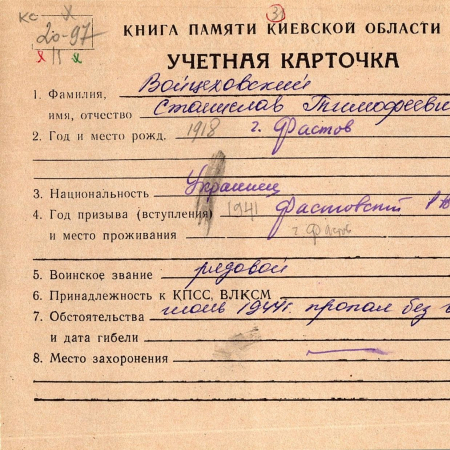 КС
20-97
3
КНИГА ПАМЯТИ КИЕВСКОЙ ОБЛАСТИ
УЧЕТНАЯ КАРТОЧКА
1. Фамилия, Войцеховский
имя, отчество Станислав Тимофееви
2. Год и место рожд. 1918 г. Фастов
3. Национальность Украинец
4. Год призыва (вступления) 1941 Фастовский
и место проживания г. Фастов
5. Воинское звание рядовой
6. Принадлежность к КПСС, ВЛКСМ
7. Обстоятельства июль 1944г. пропал без
и дата гибели
8. Место захоронения